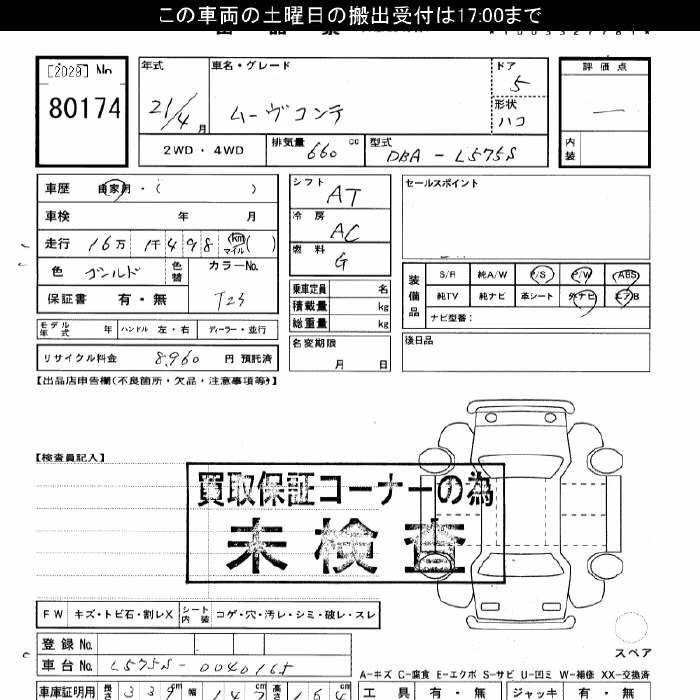 この車両の土曜日の搬出受付は17:00まで
[2029] No
80174
年式
21/4月
車名・グレード
ムーヴコンテ
ドア
5
形状
ハコ
評価点
—
内装
2WD・4WD
排気量 660 cc
型式 DBA-L575S
車歴 自家用・( )
車検 年 月
走行 16万 1千498 km マイル ( )
色 ゴールド 色替
カラーNo. T23
保証書 有・無
シフト AT
冷房 AC
燃料 G
セールスポイント
乗車定員 名
積載量 kg
総重量 kg
装備品
S/R 純A/W P/S P/W ABS
純TV 純ナビ 革シート 外ナビ エアB
ナビ型番:
モデル年式 年 ハンドル 左・右 ディーラー・並行
名変期限 月 日
後日品
リサイクル料金 8,960 円 預託済
【出品店申告欄(不良箇所・欠品・注意事項等)】
【検査員記入】
買取保証コーナーの為
未検査
FW キズ・トビ石・割レX シート内装 コゲ・穴・汚レ・シミ・破レ・スレ
登録No.
車台No. L575S-0040165
スペア
A-キズ C-腐食 E-エクボ S-サビ U-凹ミ W-補修 XX-交換済
車庫証明用 長さ 339cm 幅 147cm 高さ 164cm
工具 有・無 ジャッキ 有・無